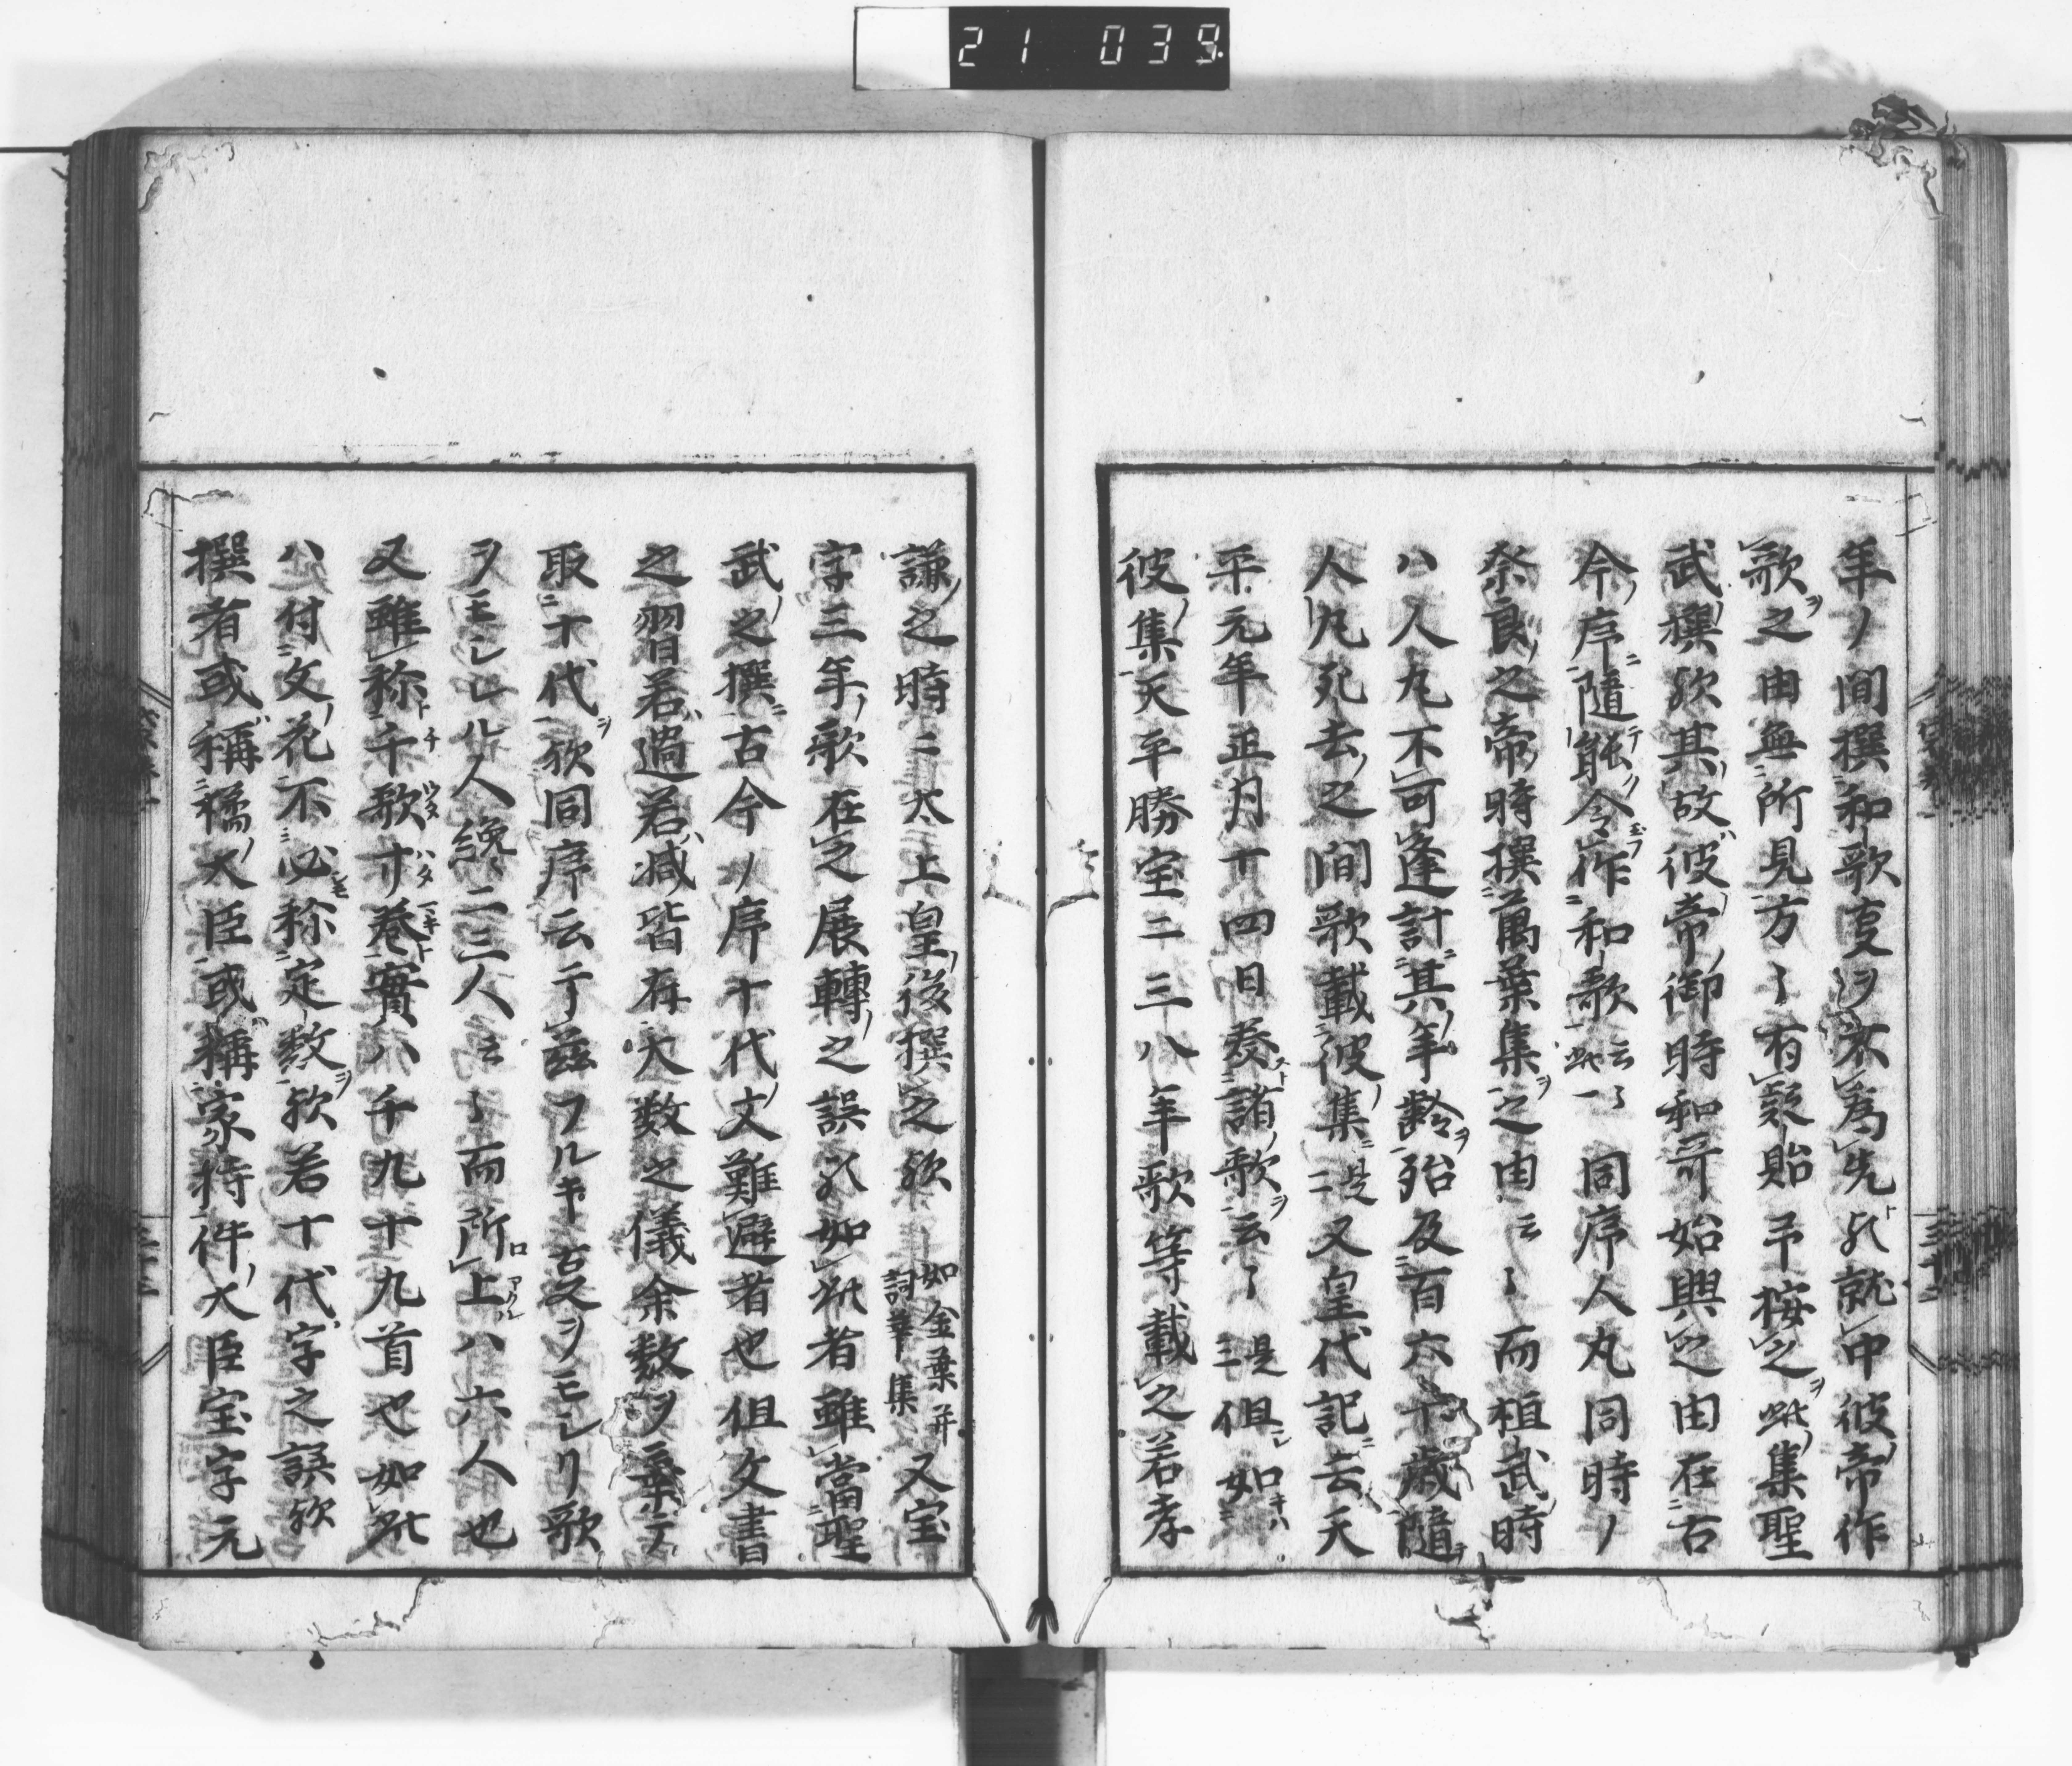 21 039
年ノ間撰和歌㕝ヲ以為先歟就中彼帝作
歌之由無所見方々有疑貽乎按之此集聖
武撰歟其故彼帝御時和哥始興之由在古
今序随能令作和歌云々此一々同序人丸同時ノ
奈良之帝時撰萬葉集之由云々而桓武時
ハ人丸不可逢計其年齢殆及百六十歳随
人丸死去之間歌載彼集是二又皇代記云天
平元年正月十四日奏諸歌云々是三但如
彼集天平勝宝二三八年歌等載之若孝
謙之時ニ太上皇後撰之歟如金葉并詞華集又宝
字三年歌在之展轉之誤歟如此者雖當聖
武之撰古今ノ序十代文難避者也但文書
之習若過若減皆存大数之儀余数ヲ棄テ
取十代歟同序云于茲フルキ㕝ヲモシリ歌
ヲモシレル人纔二三人云々而所上ハ六人也
又雖称千歌廿巻實ハ千九十九首也如此
ハ付文花不必称定数歟若十代字之誤歟
撰者或稱橘大臣或稱家持件大臣宝字元